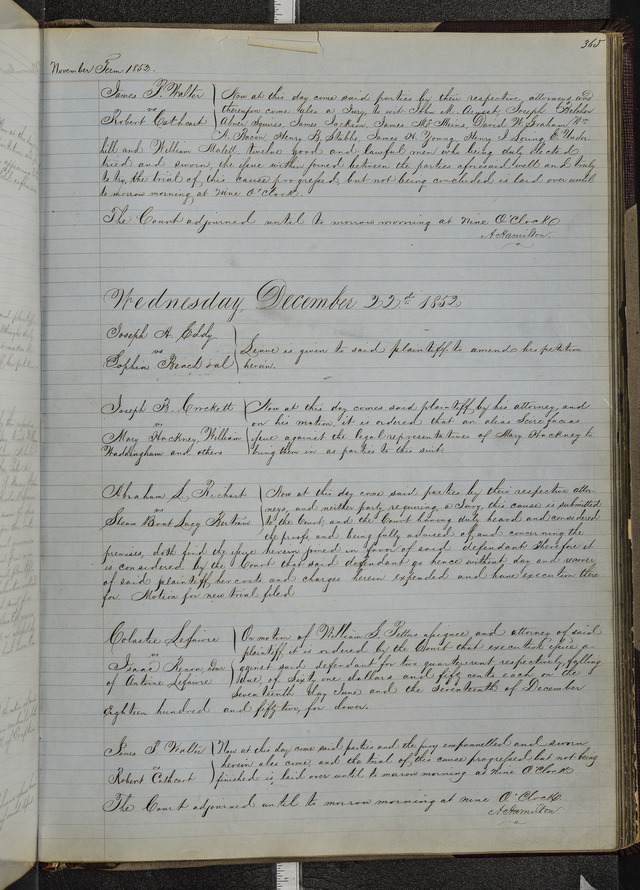 365
November Term 1852.
James T. Walter
vs
Robert Cathcart
Now at this day come said parties by their respective attorneys and
thereupon come also a Jury to wit John M. August, Joseph
Abner Squires, James Jackson, James David W. Graham, Wm
T. Mason, Henry B. Stable, James H. Young, Henry J. Spring, E. Under
hill and William twelve good and lawful men who being duly elected
tried and sworn, the issue within joined between the parties aforesaid well and truly
to try, the trial of this cause progressed, but not being concluded is laid over until
to morrow morning at nine O'Clock.
The Court adjourned until to morrow morning at nine O'Clock
A Hamilton.
Wednesday, December 22d 1852
Joseph A. Eddy
vs
Sophia et al
Leave is given to said plaintiff to amend his petition
herein.
Joseph B. Crockett
vs
Mary Hackney, William
Waddingham and others
Now at this day comes said plaintiff by his attorney, and
on his motion, it is ordered that an alias Scire facias
issue against the legal representatives of Mary Hackney to
bring them in as parties to this suit
Abraham S.
vs
Steam Boat Lucy Bertram
Now at this day come said parties by their respective attor
neys, and neither party requiring a Jury, this cause is submitted
to the Court, and the Court having duly heard and considered
the proofs and being fully advised of and concerning the
premises, doth find the issue herein joined in favor of said defendant Therefore it
is considered by the Court that said defendant go hence without day and recover
of said plaintiff, her costs and charges herein expended and have execution there
for. Motion for new trial filed
Colastie Lefaivre
vs
Isaac
of Antoine Lefaivre
On motion of William S. assignee and attorney of said
plaintiff, it is ordered by the Court that execution issue a-
gainst said defendant for two quarters rent respectively, falling
due, of Sixty one dollars and fifty cents each on the
Seventeenth day June and the Seventeenth of December
Eighteen hundred and fifty two, for dower.
James T. Walter
vs
Robert Cathcart
Now at this day come said parties and the jury empannelled and sworn
herein also come, and the trial of this cause progressed but not being
finished is laid over until to morrow morning at nine O'Clock
The Court adjourned until to morrow morning at nine O'Clock
A Hamilton.